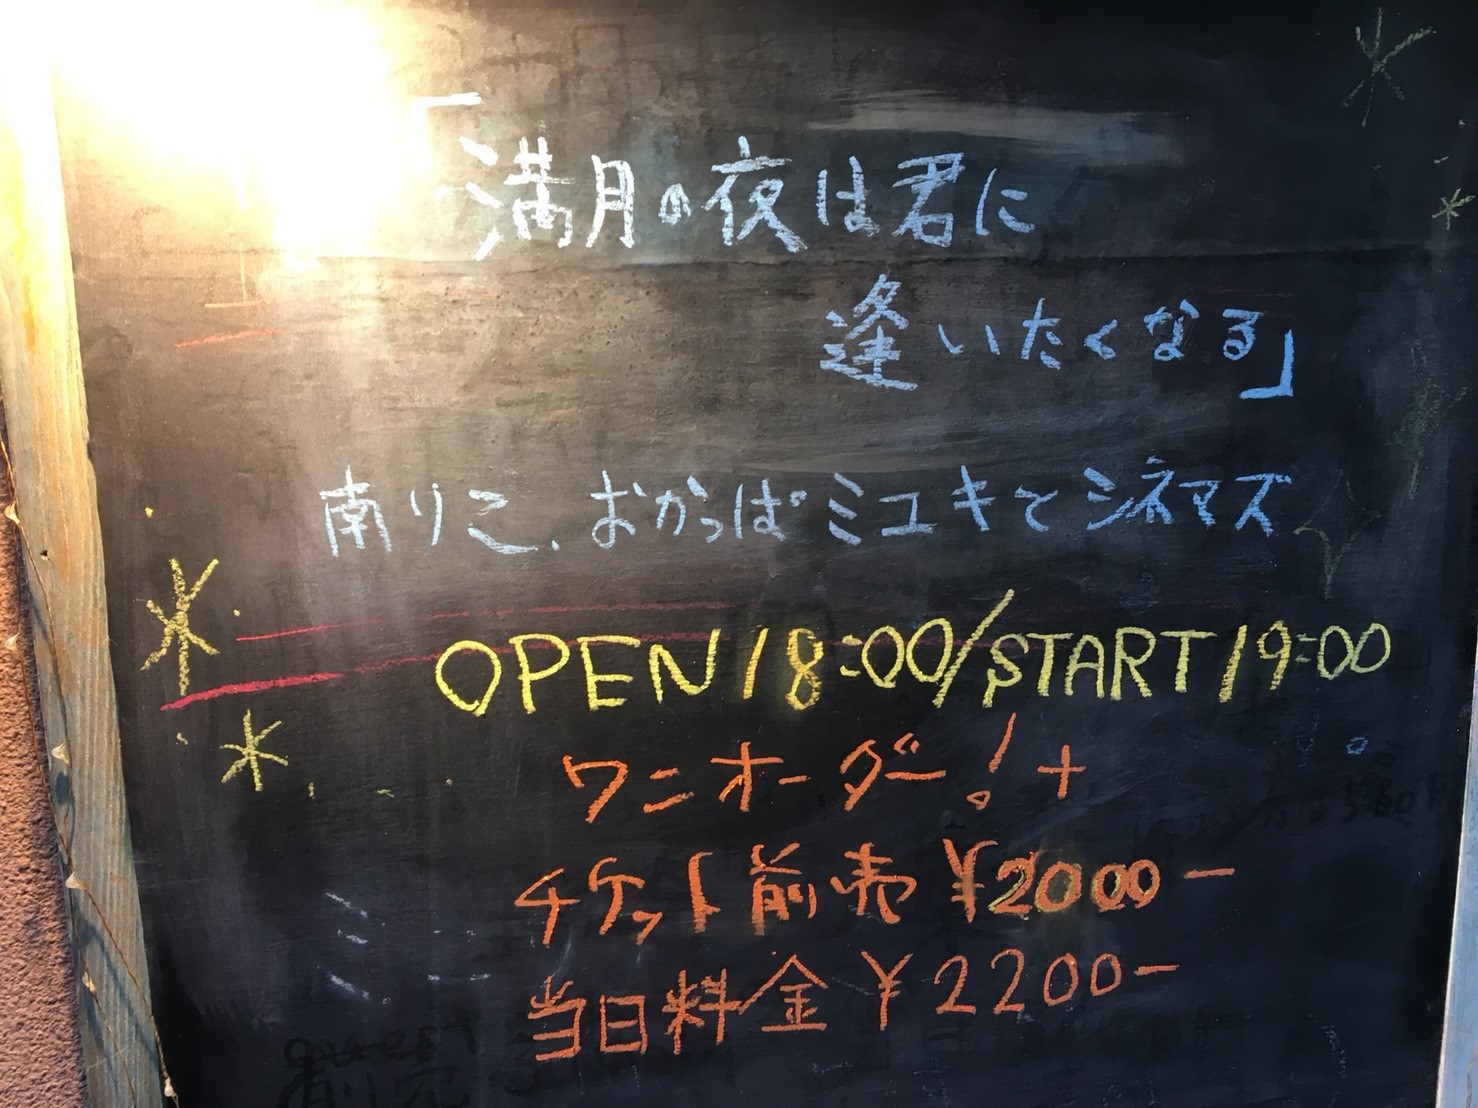 「満月の夜は君に
逢いたくなる」
南りこ、おかっぱミユキとシネマズ
OPEN18:00/START19:00
ワンオーダー!+
チケット前売¥2000-
当日料金¥2200-